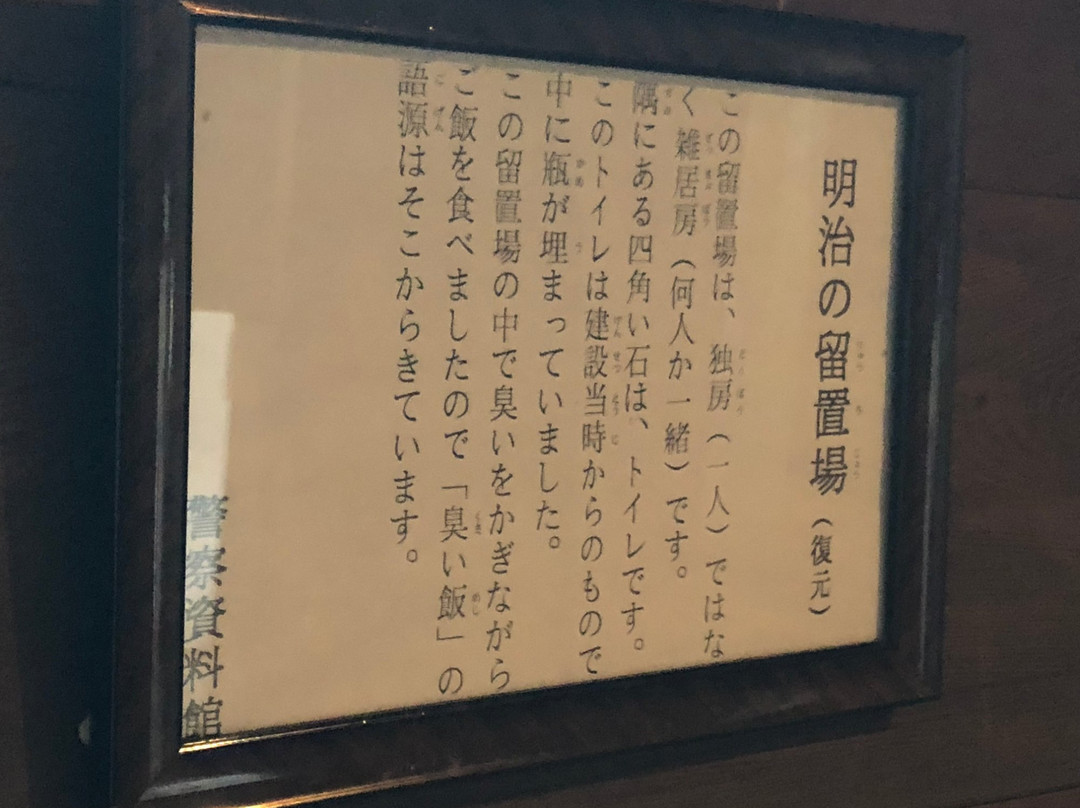 明治の留置場（復元）
この留置場は、独房（一人）ではな
く雑居房（何人か一緒）です。
隅にある四角い石は、トイレです。
このトイレは建設当時からのもので
中に瓶が埋まっていました。
この留置場の中で臭いをかぎながら
ご飯を食べましたので「臭い飯」の
語源はそこからきています。
警察資料館